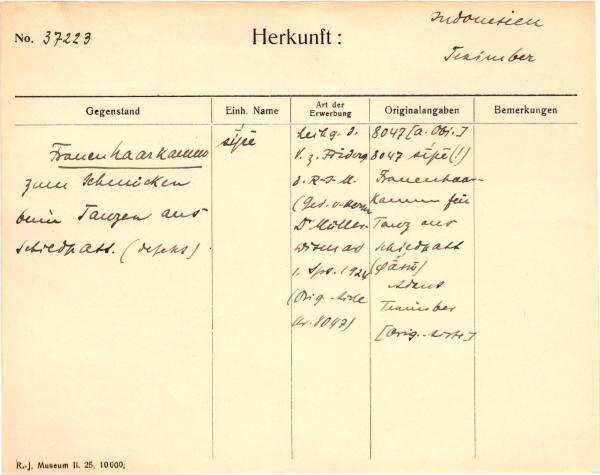 No. 37223
Herkunft:
Indonesien
Tanimber
Gegenstand
Einh. Name
Art der Erwerbung
Originalangaben
Bemerkungen
Frauenhaarkamm
zum Schmücken
beim Tanzen aus
Schildpatt. (defekt)
sipe
Leihg. d.
V. z. Förderg
d. R-J-M.
(Ges. v. Herrn
Dr Müller-
Wismar
1. Sps. 1924
(Orig.-Liste
Nr. 8047)
8047 [a. Obj.]
8047 sipe (!)
Frauenhaar-
kamm für
Tanz aus
Schildpatt
Adaut
Tanimber
[Orig.-Liste]
R.-J. Museum II. 25. 10 000.